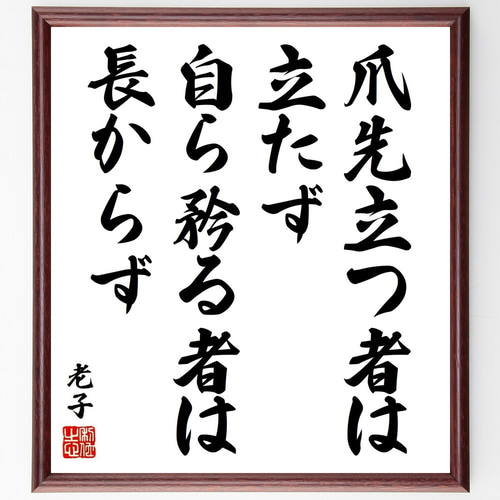 爪先立つ者は
立たず
自ら矜る者は
長からず
老子